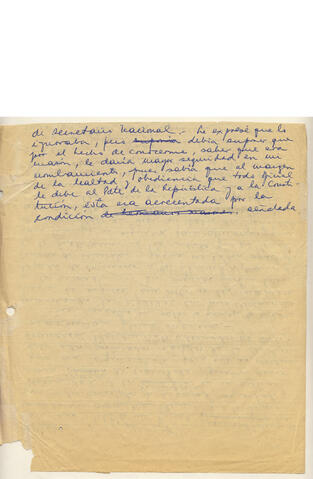 de Secretario Nacional.- Le expresé que lo
ignoraba, pero suponia debia suponer que
por el hecho de conocerme, saber que era
masón, le daria mayor seguridad en mi
nombramiento, pues sabia que al margen
de la lealtad, obediencia que todo
le debe al Pdte de la República y a la Consti-
tución, ésta era acrecentada por la
condición de hermano señalada